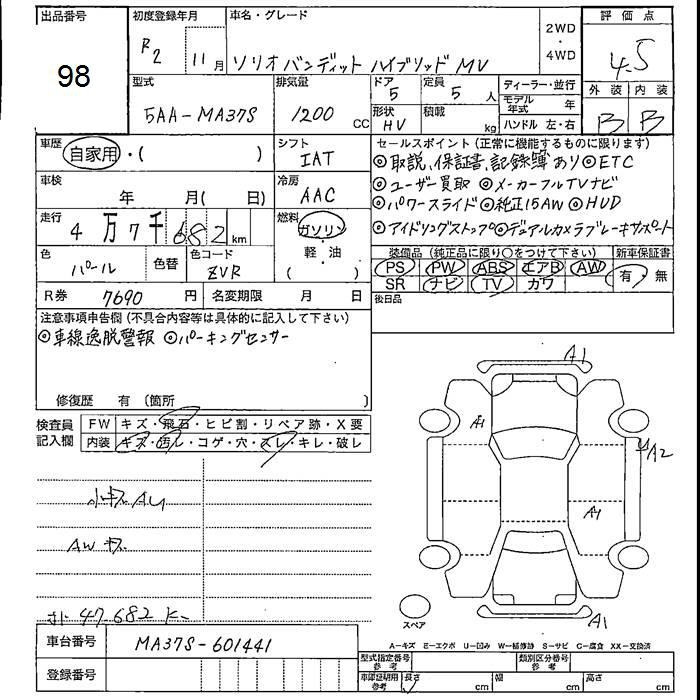 出品番号
98
初度登録年月
R2 11月
車名・グレード
ソリオ バンディット ハイブリッド MV
2WD
・
4WD
評価点
4.5
外装 内装
B B
型式
5AA-MA37S
排気量
1200 cc
ドア
5
定員
5 人
形状
HV
積載
kg
ディーラー・並行
モデル年式 年
ハンドル 左・右
車歴
自家用・( )
シフト
IAT
車検
年 月( 日)
冷房
AAC
走行
4万7千682km
燃料
ガソリン
・
軽・油
( )
色
パール
色替
色コード
ZVR
R券 7690円
名変期限 月 日
セールスポイント(正常に機能するものに限ります)
◎取説、保証書、記録簿あり◎ETC
◎ユーザー買取 ◎メーカーフルTVナビ
◎パワースライド◎純正15AW◎HUD
◎アイドリングストップ◎デュアルカメラブレーキサポート
装備品(純正品に限り〇をつけて下さい)
PS PW ABS エアB AW
SR ナビ TV カワ
新車保証書
有 無
後日品
注意事項申告欄(不具合内容等は具体的に記入して下さい)
◎車線逸脱警報 ◎パーキングセンサー
修復歴 有(箇所 )
検査員
記入欄
FW キズ・飛石・ヒビ割・リペア跡・X要
内装 キズ・汚レ・コゲ・穴・スレ・キレ・破レ
小キズAU
AWキズ
47.682K
A1
A1
A2
A1
A1
スペア
車台番号 MA37S-601441
登録番号
A-キズ E-エクボ U-凹み W-補修跡 S-サビ C-腐食 XX-交換済
型式指定番号
参考
類別区分番号
参考
車庫証明用
参考
長さ cm
幅 cm
高さ cm